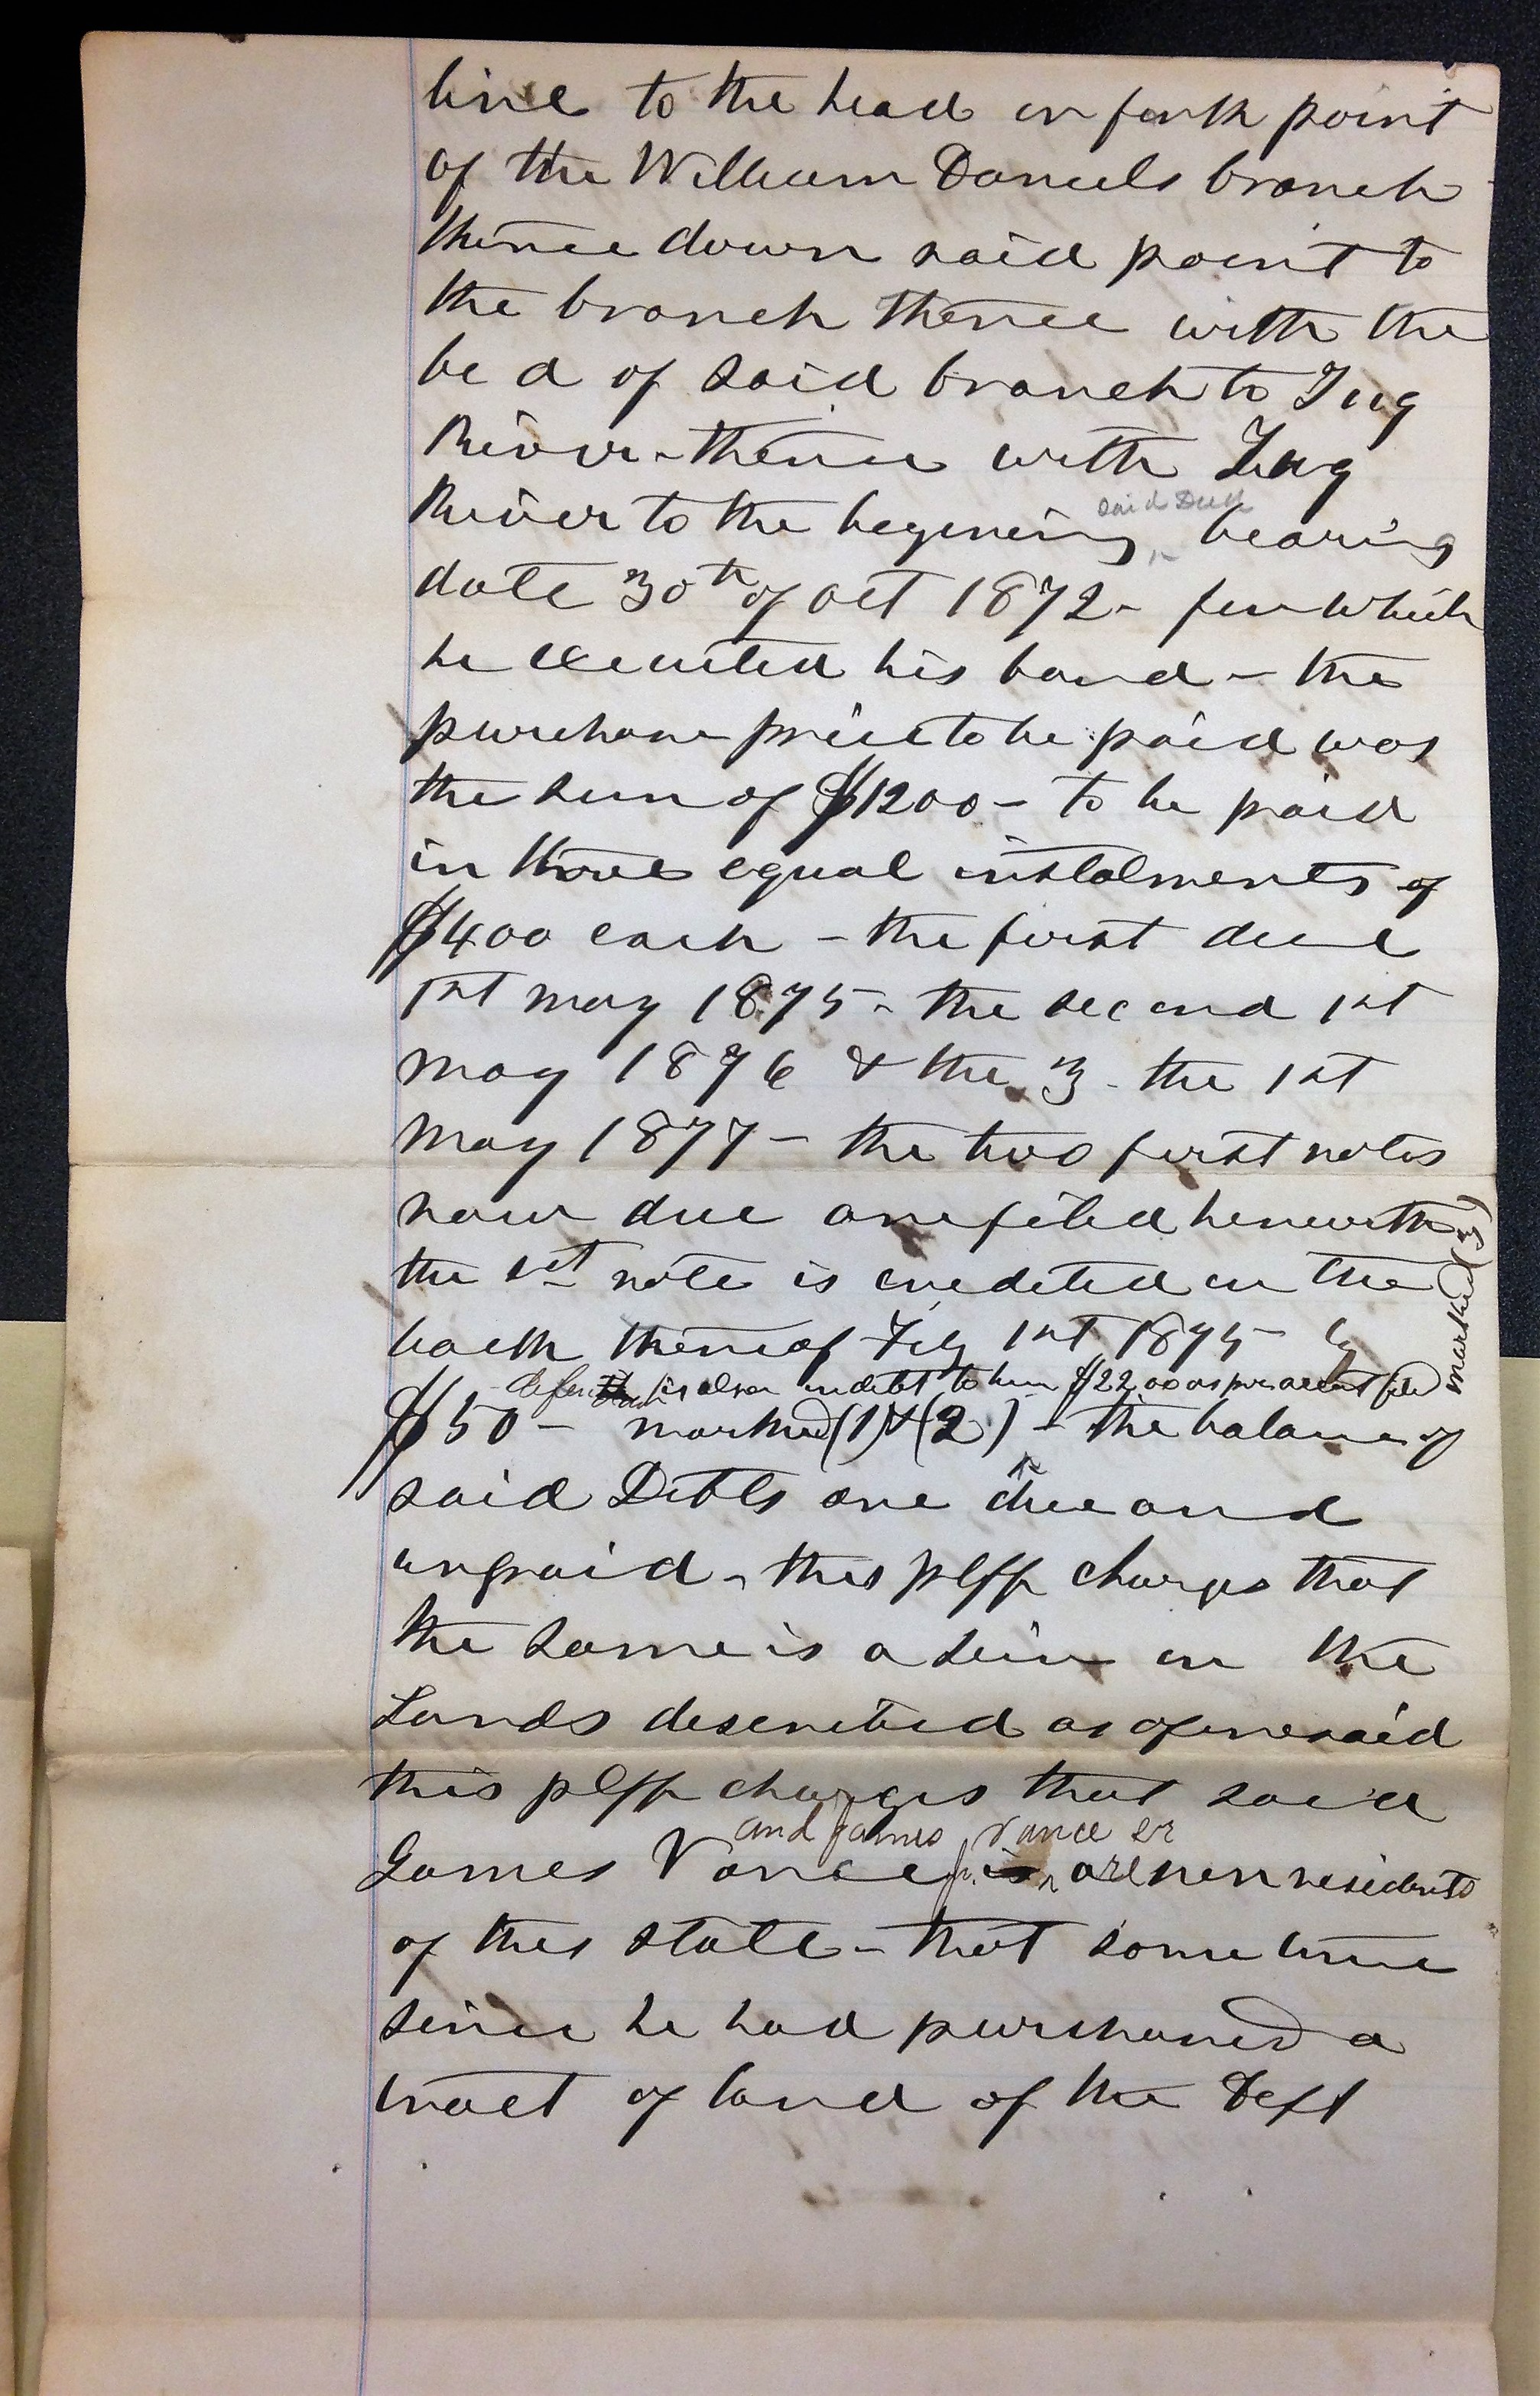 line to the head or fork point
of the William Daniels branch
thence down said point to
the branch thence with the
bed of said branch to Tug
River - thence with Tug
said Deed
River to the begening ^ bearing
date 30th of Oct 1872 - for which
he executed his bond - the
purchase price to be paid was
the sum of $1200 - to be paid
in three equal instalments of
$400 each - the first due
1st may 1875 - the second 1st
may 1876 & the 3 - the 1st
may 1877 - the two first notes
now due are filed herewith
the 1st note is credited on the
back thereof Feby 1st 1875 by
is also indebt to him $22.00 as per account filed marked (3)
$50 - marked (1) & (2) - the balance of
said Debts are due and
unpaid - this plff charges that
the same is a lein on the
Lands described as aforesaid
this plff charges that said
and James Vance sr
James Vance jr. is ^ are non residents
of this state - that some time
since he had purchased a
tract of land of the Deft